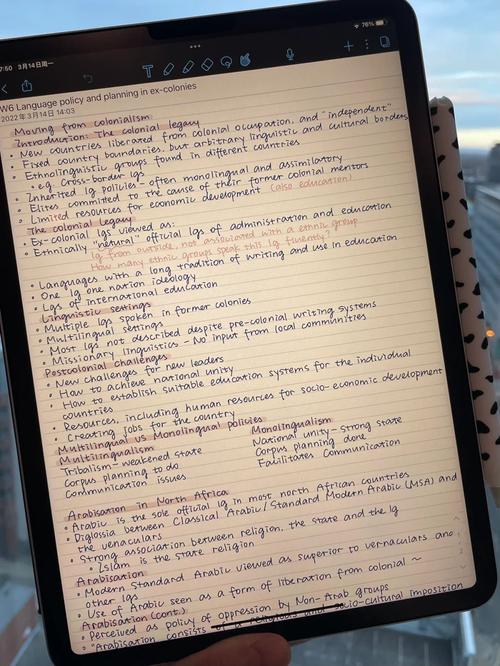 7:50 3月14日周一
76%
W6 Language policy and planning in ex-colonies
2022年3月14日 14:03
Moving from Colonialism:
Introduction: The colonial legacy
• New countries liberated from colonial occupation, and "independent"
• Fixed country boundaries, but arbitrary linguistic and cultural borders
• Ethnolinguistic groups found in different countries
• e.g. Cross-border lgs
• Inherited lg policies - often monolingual and assimilatory
• Elites committed to the cause of their former colonial mentors
• Limited resources for economic development (also education)
The colonial legacy
• Ex-colonial lgs viewed as:
• Ethnically "neutral" official lgs of administration and education
lg from outside, not associated with a ethnic group
How many ethnic groups speak this lg fluently?
• Languages with a long tradition of writing and use in education
• One lg one nation ideology
• Lgs of international education
Linguistic settings
• Multiple lgs spoken in former colonies
• Multilingual settings
• Most lgs not described despite pre-colonial writing systems
• Missionary linguistics - No input from local communities
Postcolonial challenges
• New challenges for new leaders
• How to achieve national unity
• How to establish suitable education systems for the individual
countries
• Resources, including human resources for socio-economic development
• Creating jobs for the country
Multilingual vs Monolingual policies
Multilingualism Monolingualism
Tribalism - weakened state National unity - Strong state
Corpus planning to do Corpus planning done
Communication issues Facilitates Communication
Arabisation in North Africa
• Arabic is the sole official lg in most north African countries
• Diglossia between Classical Arabic/Standard Modern Arabic (MSA) and
the venaculars
• Strong association between religion, the state and the lg
• Islam is the state religion
Arabisation
• Modern Standard Arabic viewed as superior to vernaculars and
other lgs
• Use of Arabic seen as a form of liberation from colonial ~
Arabisation (cont.)
• Perceived as policy of oppression by Non-Arab groups
• "Arabisation consists of a religious and socio-cultural imposition